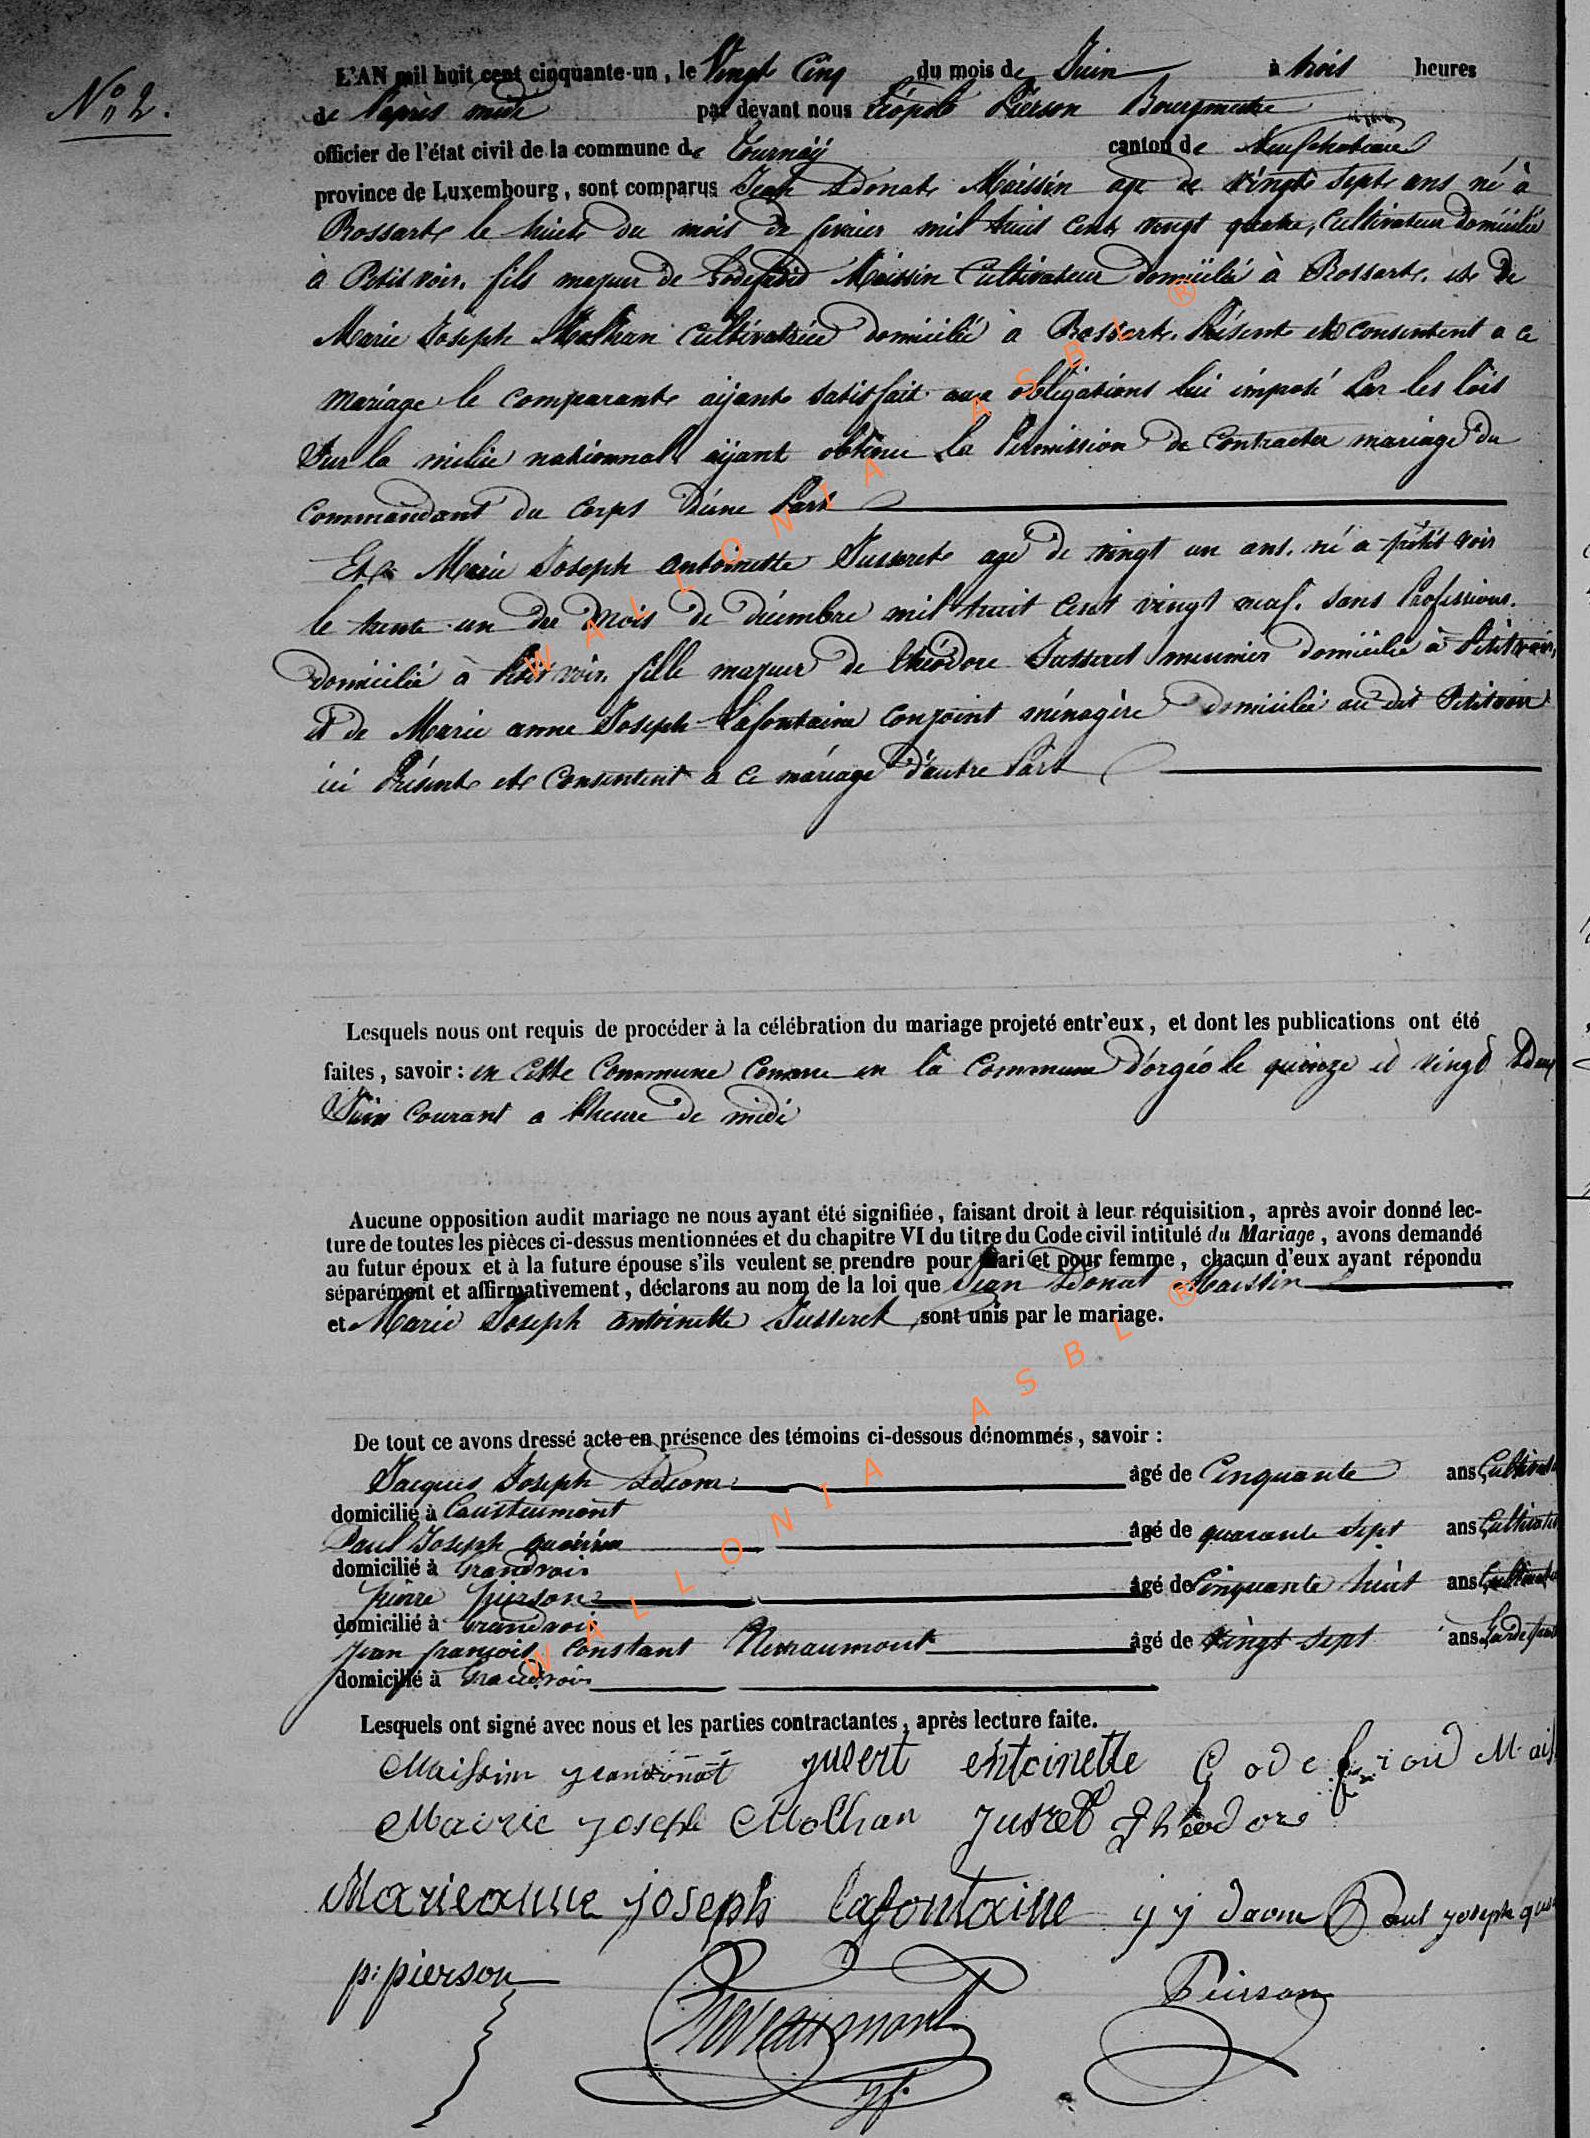 N° 2.
L'AN mil huit cent cinquante-un, le Vingt Cinq du mois de Juin à trois heures
de l'après midi par devant nous Léopold Pierson Bourgmestre
officier de l'état civil de la commune de Tournay canton de Neufchateau
province de Luxembourg, sont comparus Jean Donat Maissin agé de vingt sept ans né à
Rossart le huit du mois de fevrier mil huit cent vingt quatre, Cultivateur domicilié
à Petitvoir, fils majeur de Godefroid Maissin Cultivateur domicilié à Rossart et de
Marie Joseph Molhan Cultivatrice domicilié à Rossart Présent et consentent a ce
mariage le comparant aijant satisfait aux obligations lui imposé Par les lois
Sur la milice nationnal aijant obtenu la Permission de Contracter mariage du
Commandant du Corps d'une Part
Et Marie Joseph antoinette Jusseret agé de vingt un ans, né a petit voir
le trente un du mois de décembre mil huit Cent vingt neuf. sans Profession.
domicilié à Petit voir, fille majeur de théodore Jusseret meunier domicilié à Petitvoir,
et de Marie anne Joseph Lafontaine conjoint ménagère domicilié au dit Petitvoir
ici Présent et Consentent a ce mariage d'autre Part
Lesquels nous ont requis de procéder à la célébration du mariage projeté entr'eux, et dont les publications ont été
faites, savoir : en Cette Commune Comme en la Commune d'orgéo le quinze et vingt Deux
Juin Courant a l'heure de midi
Aucune opposition audit mariage ne nous ayant été signifiée, faisant droit à leur réquisition, après avoir donné lec-
ture de toutes les pièces ci-dessus mentionnées et du chapitre VI du titre du Code civil intitulé du Mariage, avons demandé
au futur époux et à la future épouse s'ils veulent se prendre pour mari et pour femme, chacun d'eux ayant répondu
séparément et affirmativement, déclarons au nom de la loi que Jean Donat Maissin
et Marie Joseph antoinette Jusseret sont unis par le mariage.
De tout ce avons dressé acte en présence des témoins ci-dessous dénommés, savoir :
Jacques Joseph âgé de Cinquante ans Cultivat
domicilié à
Paul Joseph âgé de quarante sept ans Cultivate
domicilié à Grandvoir
pierre pierson âgé de Cinquante huit ans Cultivate
domicilié à Grandvoir
Jean françois Constant Nevraumont âgé de vingt sept ans Garde
domicilié à Grandvoir
Lesquels ont signé avec nous et les parties contractantes, après lecture faite.
Maissin jeandonat jusert entoinette Godefrioid Mais
Mairie joseph Molhan jusret Théodore
Marieanne joseph lafontaine j j Paul joseph
p: pierson Nevraumont Pierson
jf.
WALLONIA ASBL ®
WALLONIA ASBL ®